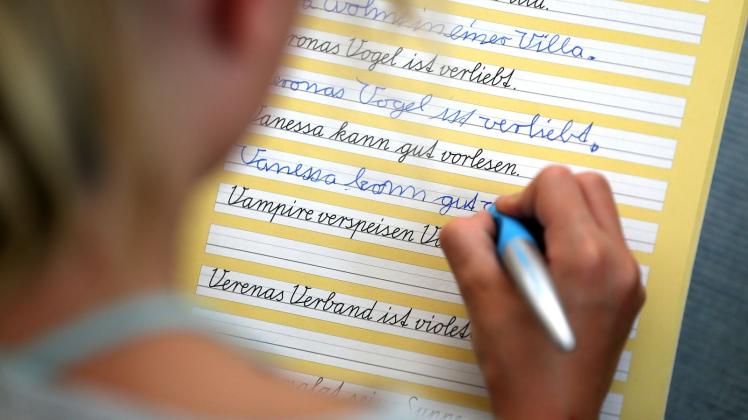 Villa.
wohnt in einer Villa.
ronas Vogel ist verliebt.
eronas Vogel ist verliebt.
Vanessa kann gut vorlesen.
Vanessa kann gut v
Vampire verspeisen V
Verenas Verband ist violet